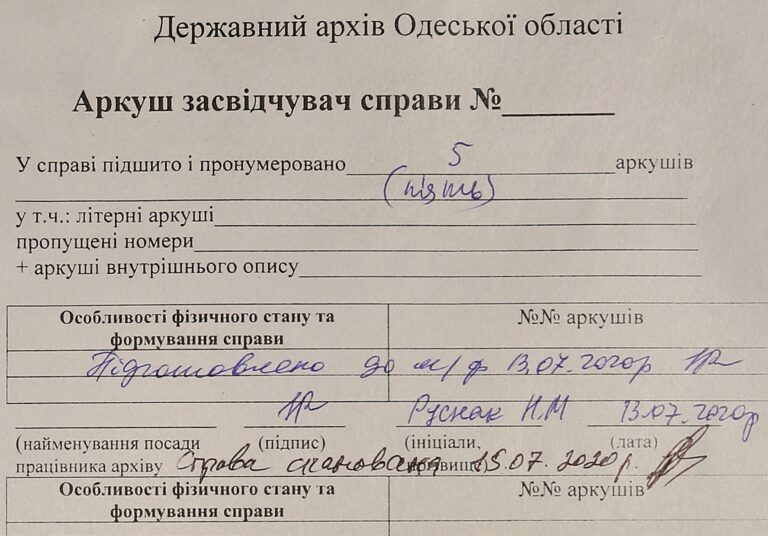 Державний архів Одеської області
Аркуш засвідчувач справи №
У справі підшито і пронумеровано 5 аркушів
(п'ять)
у т.ч.: літерні аркуші
пропущені номери
+ аркуші внутрішнього опису
Особливості фізичного стану та формування справи №№ аркушів
Підготовлено до м/ф 13.07.2020р
Руснак Н.М 13.07.2020р
(найменування посади (підпис) (ініціали, (дата)
працівника архіву прізвище)
Справа сканована 15.07.2020р.
Особливості фізичного стану та формування справи №№ аркушів